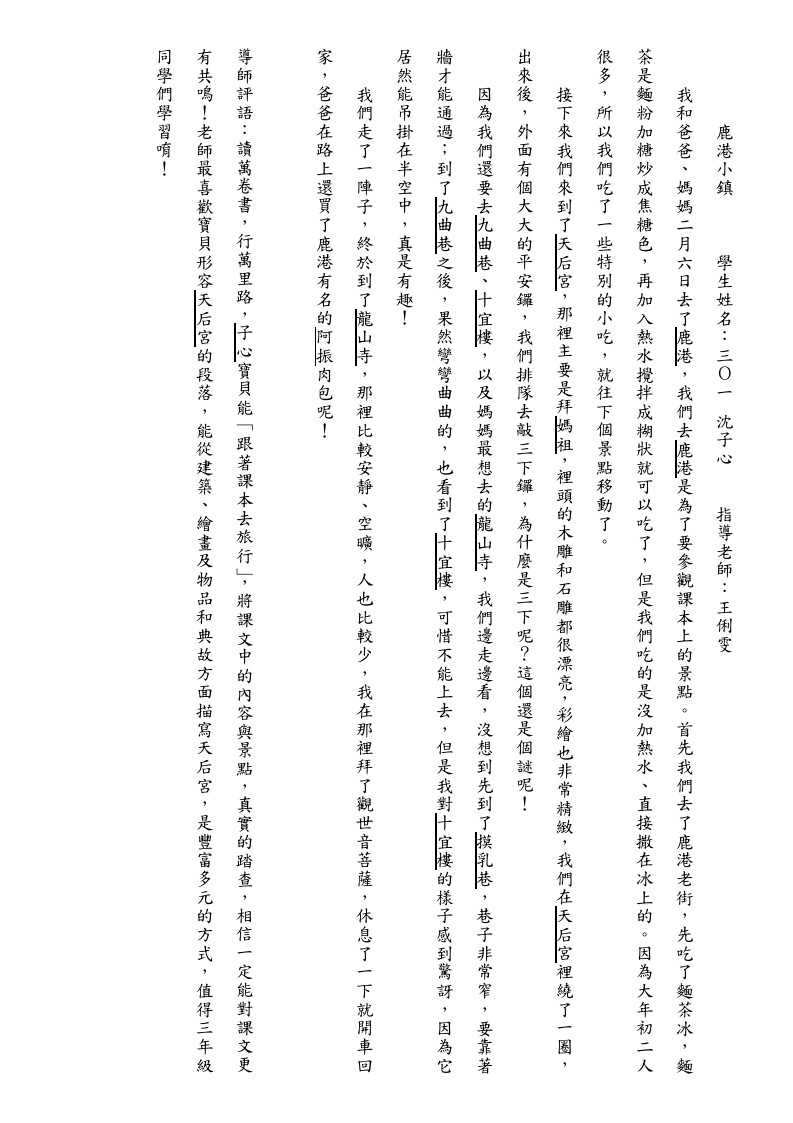 鹿港小鎮　　學生姓名：三〇一　沈子心　　指導老師：王俐雯
我和爸爸、媽媽二月六日去了鹿港，我們去鹿港是為了要參觀課本上的景點。首先我們去了鹿港老街，先吃了麵茶冰，麵
茶是麵粉加糖炒成焦糖色，再加入熱水攪拌成糊狀就可以吃了，但是我們吃的是沒加熱水、直接撒在冰上的。因為大年初二人
很多，所以我們吃了一些特別的小吃，就往下個景點移動了。
接下來我們來到了天后宮，那裡主要是拜媽祖，裡頭的木雕和石雕都很漂亮，彩繪也非常精緻，我們在天后宮裡繞了一圈，
出來後，外面有個大大的平安鑼，我們排隊去敲三下鑼，為什麼是三下呢？這個還是個謎呢！
因為我們還要去九曲巷、十宜樓，以及媽媽最想去的龍山寺，我們邊走邊看，沒想到先到了摸乳巷，巷子非常窄，要靠著
牆才能通過；到了九曲巷之後，果然彎彎曲曲的，也看到了十宜樓，可惜不能上去，但是我對十宜樓的樣子感到驚訝，因為它
居然能吊掛在半空中，真是有趣！
我們走了一陣子，終於到了龍山寺，那裡比較安靜、空曠，人也比較少，我在那裡拜了觀世音菩薩，休息了一下就開車回
家，爸爸在路上還買了鹿港有名的阿振肉包呢！
導師評語：讀萬卷書，行萬里路，子心寶貝能「跟著課本去旅行」，將課文中的內容與景點，真實的踏查，相信一定能對課文更
有共鳴！老師最喜歡寶貝形容天后宮的段落，能從建築、繪畫及物品和典故方面描寫天后宮，是豐富多元的方式，值得三年級
同學們學習唷！